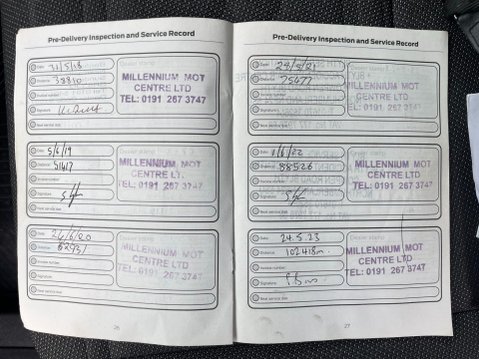 Pre-Delivery Inspection and Service Record
Date 31/5/18
Distance 38810
Invoice number
Signature
Next service due
MILLENNIUM MOT
CENTRE LTD
TEL: 0191 267 3747
Date 5/6/19
Distance 51417
Invoice number
Signature
Next service due
Dealer stamp
MILLENNIUM MOT
CENTRE LT.
TEL: 0191 267 3747
Date 26/6/20
Distance 62931
Invoice number
Signature
Next service due
Dealer stamp
MILLENNIUM MOT
CENTRE LTD
TEL: 0191 267 3747
26
Pre-Delivery Inspection and Service Record
Date 28/5/21
Distance 75477
Invoice number
Signature
Next service due
Dealer stamp
MILLENNIUM MOT
CENTRE LTD
TEL: 0191 267 3747
Date /6/22
Distance 88526
Invoice number
Signature
Next service due
Dealer stamp
MILLENNIUM MOT
CENTRE LTD
TEL: 0191 267 3747
Date 24.5.23
Distance 102418m
Invoice number
Signature
Next service due
Dealer stamp
MILLENNIUM MOT
CENTRE LTD
TEL: 0191 267 3747
27